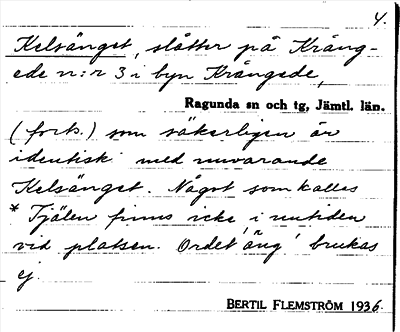 4.
Kelsänget, slåtter på Kräng-
ede n:r 3 i byn Krångede,
Ragunda sn och tg, Jämtl. län.
(forts.) som säkerligen är
identisk med nuvarande
Kelsänget. Något som kallas
* Tjälen finns icke i nutiden
vid platsen. Ordet 'äng' brukas
ej.
BERTIL FLEMSTRÖM 1936.